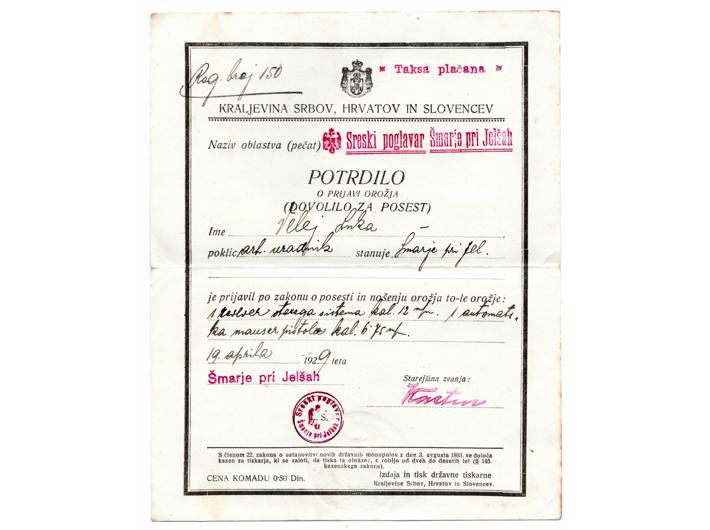 Reg. broj 150
* Taksa plačana *
KRALJEVINA SRBOV, HRVATOV IN SLOVENCEV
Naziv oblastva (pečat) Sreski poglavar Šmarje pri Jelšah
POTRDILO
O PRIJAVI OROŽJA
(DOVOLILO ZA POSEST)
Ime Velej Luka
poklic uradnik stanuje Šmarje pri Jel.
je prijavil po zakonu o posesti in nošenju orožja to-le orožje:
1 revolver starega sistema kal. 12 m/m. 1 automati-
ka mauser pištola kal. 6·75 m/m.
19. aprila 1929 leta
Šmarje pri Jelšah
Starejšina zvanja:
Sreski poglavar
Šmarje pri Jelšah
S členom 22. zakona o ustanovitvi novih državnih monopolov z dne 3. avgusta 1893. se določa
kazen za tiskarja, ki se zaloti, da tiska ta obrazec, z robijo od dveh do desetih let (§ 145.
kazenskega zakona).
CENA KOMADU 0·50 Din.
Izdaja in tisk državne tiskarne
Kraljevine Srbov, Hrvatov in Slovencev.